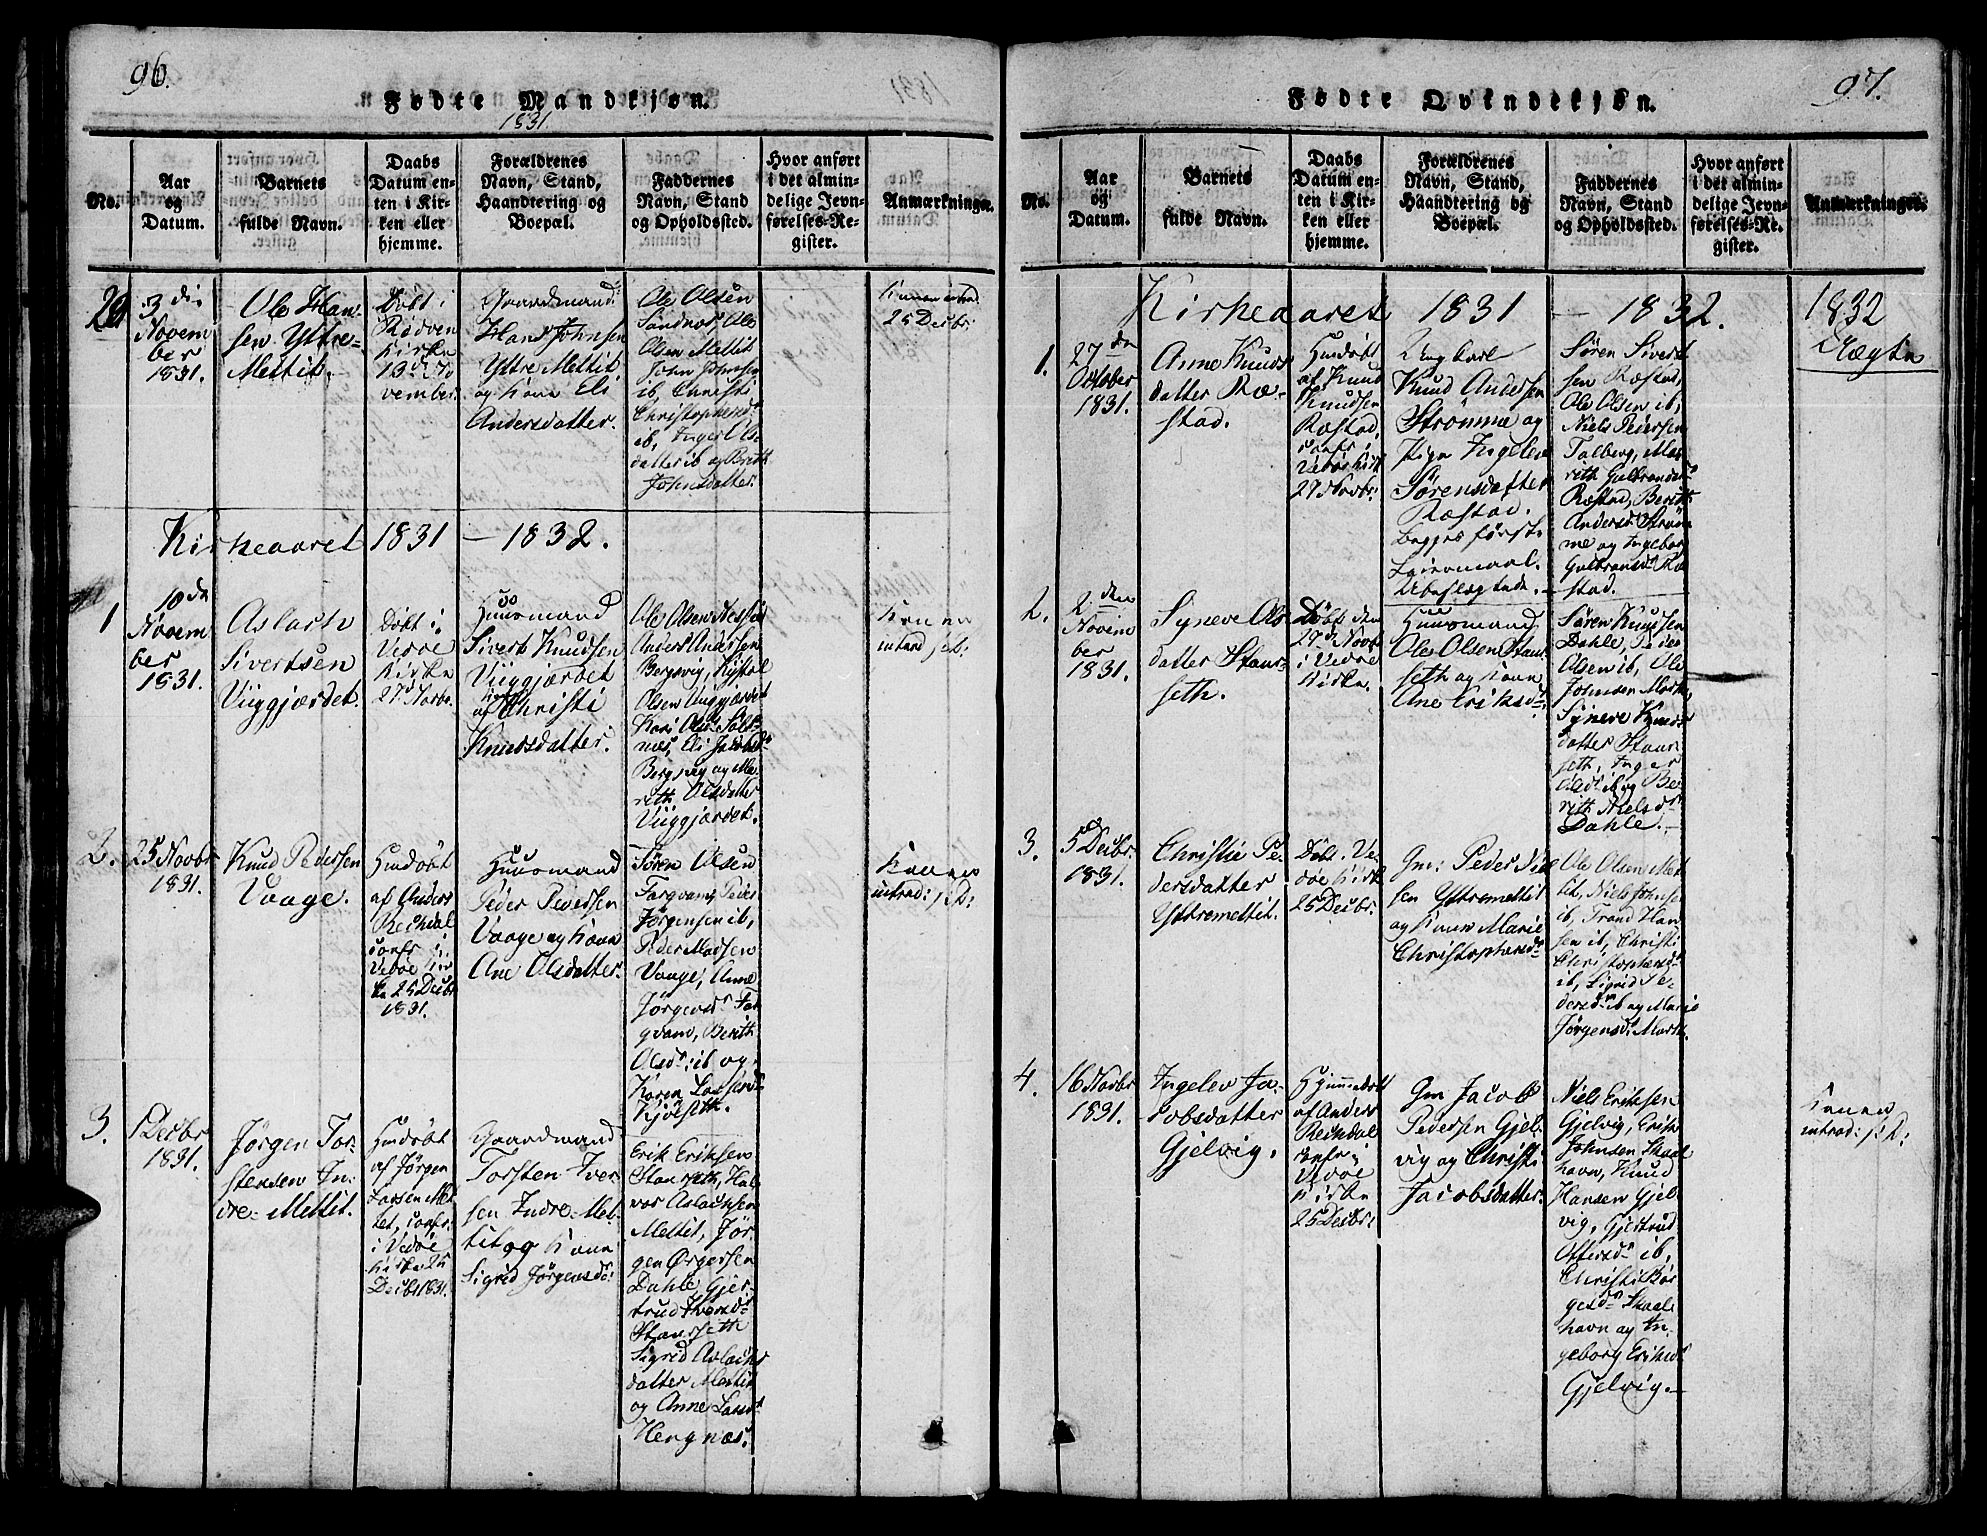 96.
Fødte Mandkjøn.
1831.
No.
Aar
og
Datum.
Barnets
fulde Navn.
Daabs
Datum en-
ten i Kir-
ken eller
hjemme.
Forældrenes
Navn, Stand,
Haandtering og
Boepæl.
Faddernes
Navn, Stand
og Opholdssted.
Hvor anført
i det almin-
delige Jevn-
førelses-Re-
gister.
Anmærkninger.
3
Novem
ber
1831.
Ole Han-
sen Yttre-
Mettit.
Døbt i
Rødven
Kirke
13 No
vember.
Gaardmand
Hans Johnsen
Yttre Mettit
og Kone Eli
Andersdatter.
Ole Olsen
Sandnes, Ole
Olsen Mettit
John Johnsen
ib, Christi
Christophersd
ib, Inger Ols-
datter ib og Brith
Johnsdatter.
25 Decbr.
Kirkeaaret 1831 - 1832.
1
10
Novem
ber
1831.
Aslach
Sivertsen
Viiggjærdet.
Døbt i
Vedøe
Kirke
27 Novbr.
Huusmand
Sivert Knudsen
Viiggjærdet
Christi
Knudsdatter.
Ole Olsen
Anders Andersen
Bergsvig,
Olsen
Kari Olsd Søls-
næs, Eli Jacobsd
Bergsvig og Ma-
rith Olsdatter
Viiggjærdet.
Konen
introd:
2.
25 Novbr
1831.
Knud Pedersen
Vaage.
Hmdøbt
af Anders
Rechdal
conf: i
Vedøe Kir
ke 25 Decbr
1831.
Huusmand
Peder Pedersen
Vaage og Kone
Ane Olsdatter.
Søren Olsen
Farqvam, Peder
Jørgensen ib,
Peder Madsen
Vaage, Anne
Far
qvam, Berith
Olsd: ib og
Karen
Konen
introd:
3.
1 Decbr
1831.
Jørgen Tor-
stensen In-
dre-Mettit.
Hmdøbt
af Jørgen
Larsen Met
tet, conf:
i Vedøe
Kirke 25
Decbr 1831.
Gaardmand
Torsten Iver-
sen Indre-Met-
tit og Kone
Sigrid Jørgensd:
Erik Eriksen
Staurseth, Hal-
vor Aslachsen
Mettit, Jør-
gen Ørgersen
Dahle, Gjer-
trud Iversd
Staurseth
Sigrid Aslachs
datter Mettit
og Anne Larsd
Hengnæs.
97.
Fødte Qvindekjøn.
No.
Aar
og
Datum.
Barnets
fulde Navn.
Daabs
Datum en-
ten i Kir-
ken eller
hjemme.
Forældrenes
Navn, Stand,
Haandtering og
Boepæl.
Faddernes
Navn, Stand
og Opholdssted.
Hvor anført
i det almin-
delige Jevn-
førelses-Re-
gister.
Anmærkninger.
Kirkeaaret 1831 - 1832.
1832
1.
27
October
1831.
Anne Knuds
datter Ræ-
stad.
Hmdøbt
af Knud
Knudsen
Ræstad,
conf: i
Vedøe Kirk
27 Novbr:
Ungkarl
Knud Andersen
Strømme og
Pige Ingelev
Sørensdatter
Ræstad.
Begges første
Leiermaal.
Søren Sivert
sen Ræstad,
Ole Olsen ib,
Niels Pedersen
Talberg, Ma-
rith Gulbrandsd
Ræstad, Berith
Andersd: Strøm
me og Ingeborg
Gulbransd: Ræ
stad.
2.
2 den
Novem
ber
1831.
Syneve Ols
datter Staur-
seth.
Døbt den
27 Novbr
i Vedøe
Kirke.
Huusmand
Ole Olsen Staur
seth og Kone
Ane Eriksd:
Søren Knudsen
Dahle, Peder
Olsen ib, Ole
Johnsen
Syneve Knuds
datter Staur-
seth, Inger
Olsd: ib og Be-
rith Nielsd
Dahle.
3.
5 Decbr.
1831.
Christie Pe-
dersdatter
Yttremettit.
Døbt i Ve-
døe Kirk
25 Decbr.
Gm: Peder
sen Yttremettit
og Kone Marie
Christophersd
Ole Olsen Met
tit, Niels Johnsen
ib, Trond Han
sen ib, Christi
Christophersd
ib, Sigrid Pe-
dersd: ib og Marie
Jørgensd:
4.
16 Novbr
1831.
Ingelev Ja-
cobsdatter
Gjelvig.
Hjemmedøbt
af Anders
Rechdal
conf: i
Vedøe
Kirke
25 Decbr:
Gm Jacob
Pedersen Gjel-
vig og Christi
Jacobsdatter.
Niels Eriksen
Gjelvig, Erik
Johnsen Skaal
havn, Knud
Hansen Gjel
vig, Gjertrud
Ottersd: ib,
Christi Bør
gesd: Skaal
havn og In-
geborg Eriksd
Gjelvig.
Konen
introd: